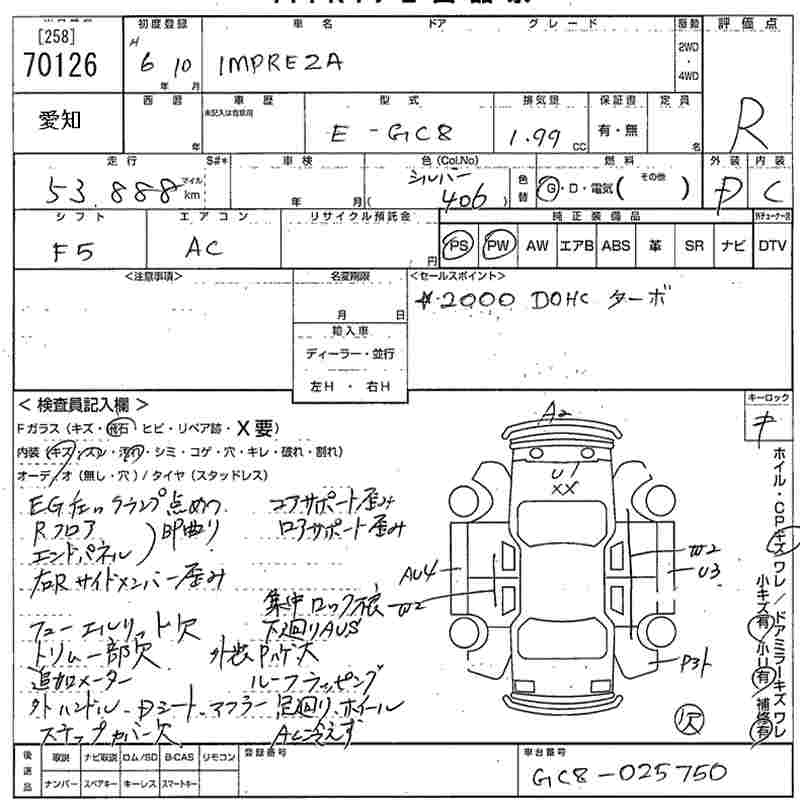 [258] 初度登録 車名 ドア グレード 駆動 評価点
70126 H 6年 10月 IMPREZA 2WD・4WD R
愛知 西暦 年 車歴 未記入は自家用 型式 E-GC8 排気銀 1.99 CC 保証書 有・無 定員 名
走行 53,888 マイル km S#* 車検 年 月 色(Col.No) シルバー ( 406 ) 色替 燃料 G・D・電気( その他 ) 外装 D 内装 C
シフト F5 エアコン AC リサイクル預託金 円 純正装備品 PS PW AW エアB ABS 革 SR ナビ DTV
<注意事項> 名変期限 月 日 <セールスポイント>
2000 DOHC ターボ
輸入車
ディーラー・並行
左H ・ 右H
<検査員記入欄> キーロック キ
Fガラス(キズ・飛石 ヒビ・リペア跡・X要)
内装(キズ・スレ・汚れ・シミ・コゲ・穴・キレ・破れ・割れ)
オーディオ(無し・穴)/タイヤ(スタッドレス)
EG左ハランプ点めつ コアサポート歪み
Rフロア 即曲り ロアサポート歪み
エンドパネル
右Rサイドメンバー歪み
集中ロック
フューエルリッド欠 下廻りAUS
トリム一部欠 外装 大
追加メーター ルーフラッピング
外ハンドル、Dシート、マフラー 足廻り、ホイール
ステップカバー欠 AC冷えず
A2
U1
XX
AU4
W2
W2
U3
P3ト
欠
ホイル・CPキズワレ/ドアミラーキズワレ
小キズ有・小U有・補修有
後送品 取説 ナビ取説 ロム/SD B-CAS リモコン 登録番号 車台番号
ナンバー スペアキー キーレス スマートキー GC8-025750